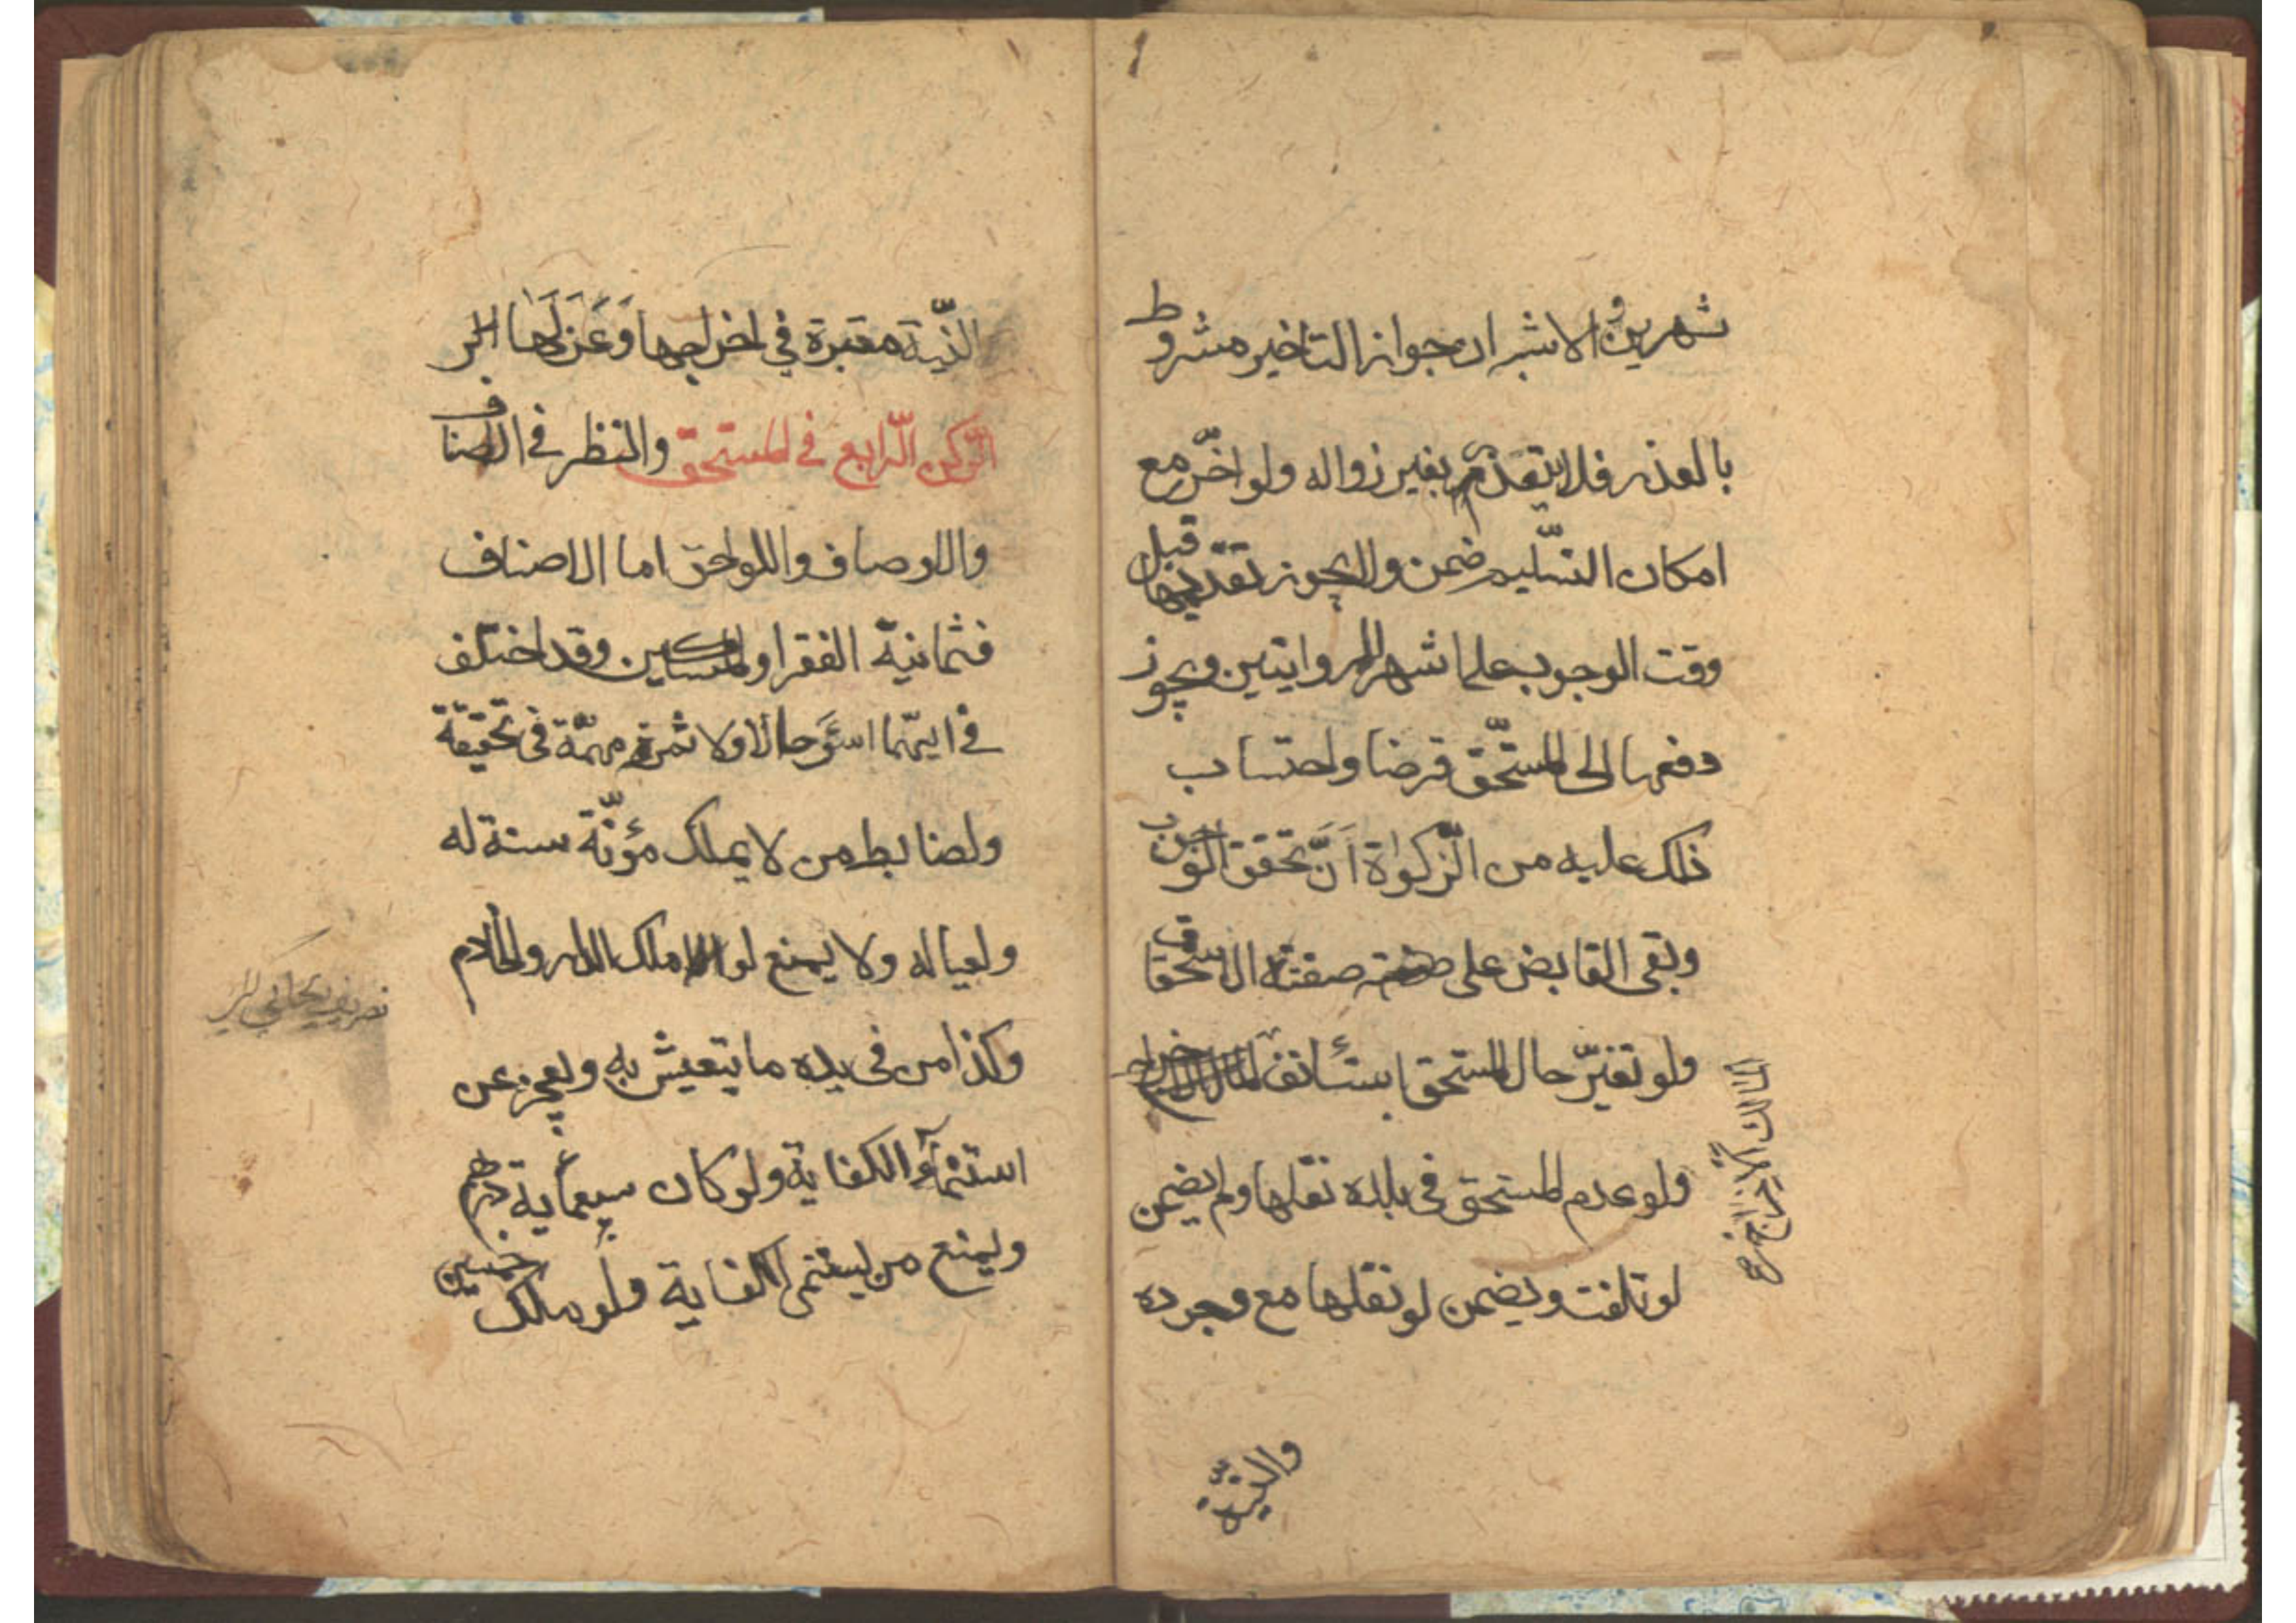 شهرين والاشبه ان جواز التاخير مشروط
بالعذر فلا يتقدم بغير زواله ولو اخّر مع
امكان التسّليم ضمن ولا يجوز تقديمها قبل
وقت الوجوب على اشهر الروايتين ويجوز
دفعها الى المستحّق قرضا واحتساب
ذلك عليه من الزّكوٰة اَنَّ تحقق الوجوب
وبقى القابض على صفته الاستحقاق
ولو تغيّر حال المستحق استئانف
المالك الاخراج
ولو عدم المستحق فى بلده نقلها ولم يضمن
لو تلفت ويضمن لو نقلها مع وجوده
والنيّة
النّية معتبرة في اخراجها وَعَزلَها
الرّكن الرّابع فى المستحق والنظر فى الاصناف
والاوصاف واللواحق اما الاصناف
فثمانية الفقرا والمساكين وقد اختلف
فى ايّهما اسئَو حالا ولا ثمرة مهمّة فى تحقيقة
ولضابط من لا يملك مؤنّة سنة له
ولعياله ولا يمنع لو ملك الدار والخادم
وكذا من فى يده ما يتعيش به ويعجز عن
استنمآء الكفاية ولو كان سبعمأية درهم
ويمنع من يستنمى الكفاية ولو ملك خمسين